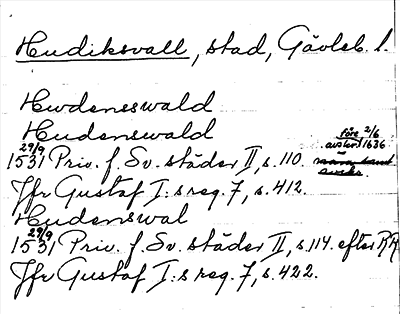 Hudiksvall, stad, Gävleb. l.
Hwdeneswald
Hudenswald
före 2/6
avskr. 1636
29/9
1531 Priv. f. Sv. städer II, s. 110.
Jfr Gustaf I:s reg. 7, s. 412.
Hudenswal
29/9
1531 Priv. f. Sv. städer II, s. 114. efter RR
Jfr Gustaf I:s reg. 7, s. 422.